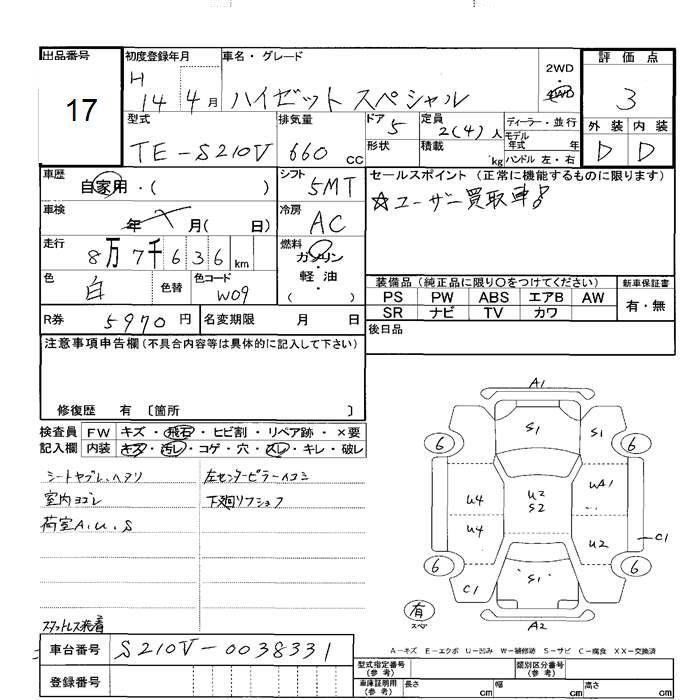 出品番号 初度登録年月 車名・グレード 評価点
17
H 14年 4月 ハイゼット スペシャル 2WD 4WD 3
型式 排気量 ドア 定員 ディーラー・並行 外装 内装
TE-S210V 660 cc 5 2(4)人 モデル年式 年 D D
形状 積載 kg ハンドル 左・右
車歴 自家用・( ) シフト 5MT セールスポイント (正常に機能するものに限ります)
☆ユーザー買取車!
車検 年 月( 日) 冷房 AC
走行 8万7千636km 燃料 ガソリン・軽油 ( )
色 白 色替 色コード W09
装備品 (純正品に限り○をつけてください) 新車保証書
PS PW ABS エアB AW 有・無
SR ナビ TV カワ
R券 5970円 名変期限 月 日
後日品
注意事項申告欄(不具合内容等は具体的に記入して下さい)
修復歴 有 〔箇所 〕
検査員 FW キズ・飛石・ヒビ割・リペア跡・×要
記入欄 内装 キズ・汚レ・コゲ・穴・スレ・キレ・破レ
シートヤブレ、ヘタリ 左センターピラーイコミ
室内ヨゴレ 下廻リフショク
荷室A.U.S
スタットレス装着
A1
S1 S1
6 6
U4 U2 S2 UA1
U4 U2 C1
6 6
C1 S1
有 スペア A2
A-キズ E-エクボ U-凹み W-補修跡 S-サビ C-腐食 XX-交換済
車台番号 S210V-0038331
登録番号
型式指定番号(参考) 類別区分番号(参考)
車庫証明用(参考) 長さ cm 幅 cm 高さ cm